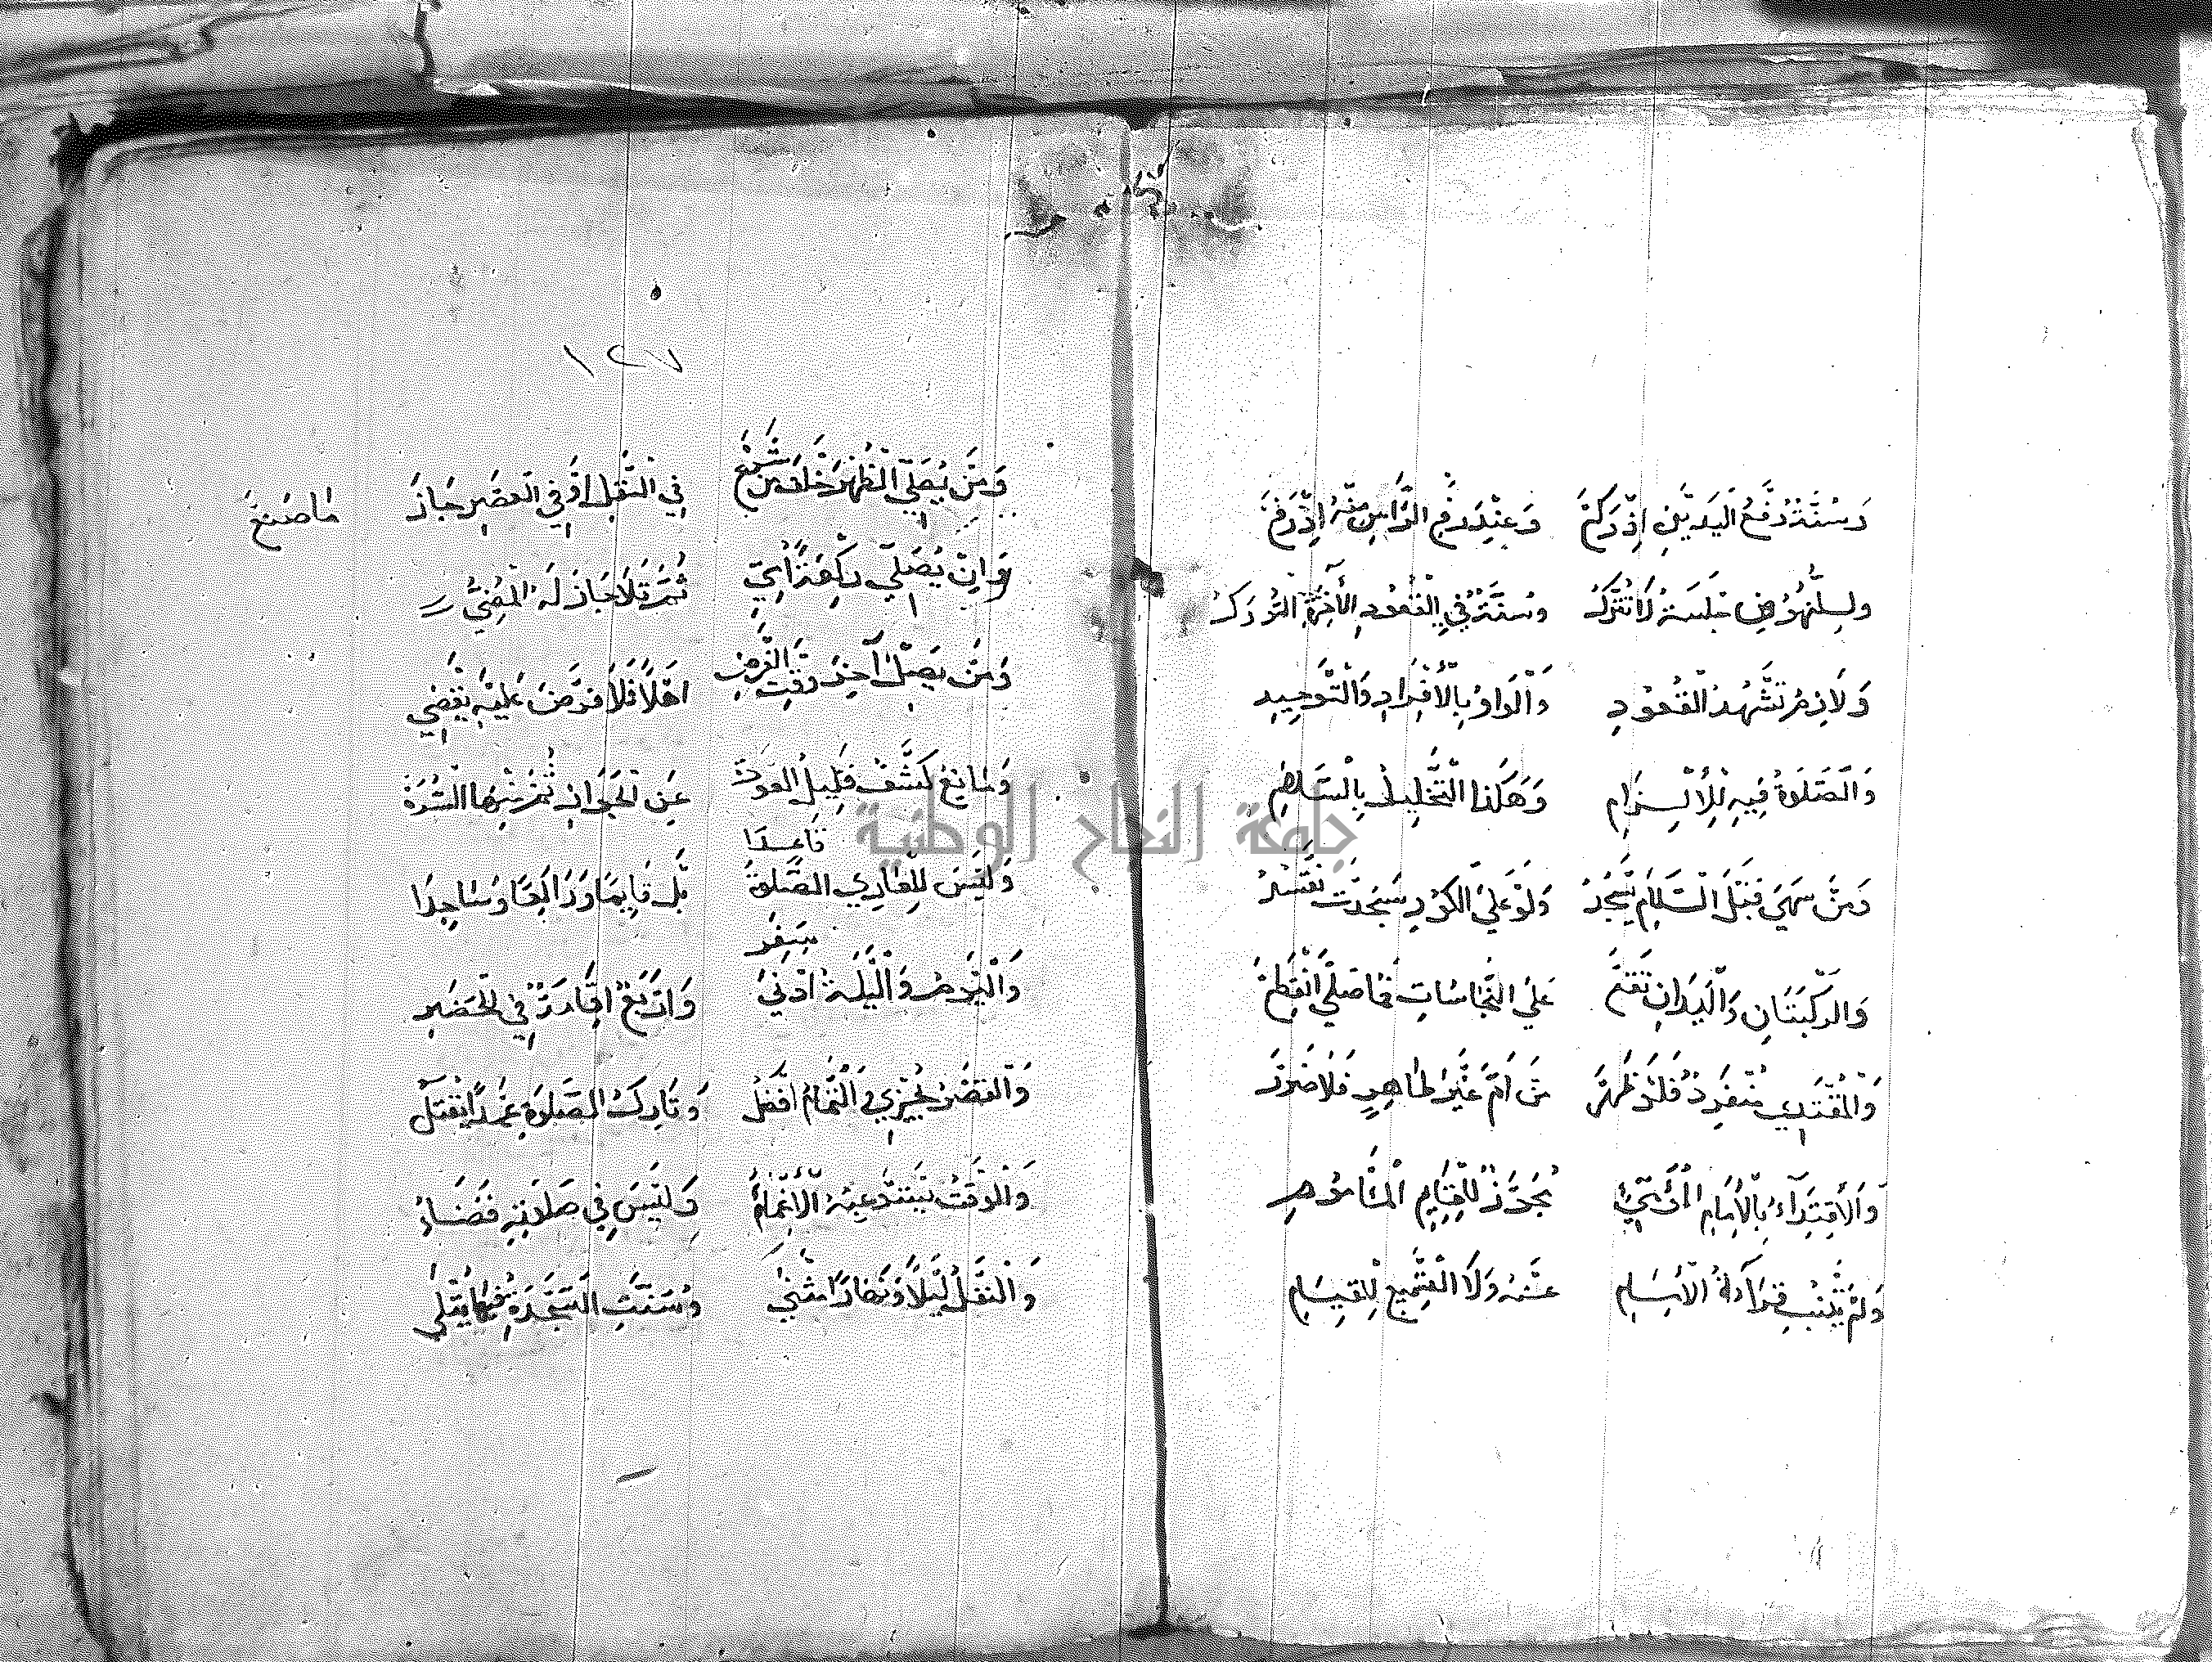 وَسُنَّةٌ رَفْعُ الْيَدَيْنِ اِذْ رَكَعْ وَعِنْدَ رَفْعِ الرَّأسِ مِنْهُ اِذْ رَفَعْ
وللنُّهُوضِ جَلْسَةٌ لَا تُتْرَكُ وسُنَّةٌ فِي الْقُعُودِ الْأَخِرَةِ التَّوَرُّكُ
وَلَازِمٌ تَشَهُّدُ الْقُعُودِ وَالْوَاوُ بِالْأَفْرَادِ وَالتَّوحِيدِ
وَالصَّلَوةُ فِيهِ لِلْأِلْتِزَامِ وَهَكَذا التَّحْلِيلُ بِالسَّلَامِ
وَمَنْ سَهَى قَبْلَ السَّلَامِ يَسْجُدُ وَلَوْ عَلَى الْكَوْرِ سَجَدْتَ تَفْسُدُ
وَالرُّكْبَتَانِ وَالْيَدَانِ تَقَعْ عَلَى النَّجَاسَاتِ فَمَا صَلَّى انْقَطَعْ
وَالْمُقْتَدِي مُنْفَرِدٌ فَلَوْ ظَهَرْ مَنْ اَمَّ غَيْرَ طَاهِرٍ فَلَا ضَرَرْ
وَالْأَقْتِدَآءُ بِالْأِمَامِ الْمُومِيْ يُجَوَّزْ لِلْقِيَامِ الْمَأمُومِ
وَلَمْ يُثْبِتْ قِرَآءَةُ الْأِمَامِ عَنْهُ وَلَا التَّسْمِيعُ لِلْقِيَامِ
١٢٧
وَمَنْ يُصَلِّي الظُّهْرَ خَلْفَ مَنْ شَرَعْ فِي النَّفْلِ اَوْ فِي الْعَصْرِ جَازَ مَا صَنَعْ
وَاِنْ يُصَلِّي رَكْعَةً اُمِّيٌّ ثُمَّ تَلَا جَازَ لَهُ الْمُضِيُّ
وَمَنْ يَصِرْ آخِرَ وَقْتِ الْفَرْضِ اَهْلًا فَلَا فَرْضَ عَلَيْهِ يَقْضِي
وَمَانِعٌ كَشْفُ قَلِيلِ الْعَوْرَةْ عَنِ الْجَوَازِ ثُمَّ مِنْهَا السُّرَّةْ
وَلَيْسَ لِلْعَارِي الصَّلَوةُ قَاعِدَا بَلْ قَايِمًا وَرَاكِعًا وَسَاجِدَا
وَالْيَوْمُ وَالْلَّيْلَةُ اَدْنَى سَفَرِ وَاَرْبَعٌ اِقَامَةٌ فِي الْحَضَرِ
وَالْقَصْرُ يُجْزِي وَالتَّمَامُ اَفْضَلُ وَتَارِكُ الصَّلَوةِ عَمْدًا يُقْتَلُ
وَالْوَقْتُ يَبْتَدَّ عَنْهُ الْأِغْمَاءُ وَلَيْسَ فِي صَلَاتِهِ قَضَاءُ
وَالنَّفْلُ لَيْلًا وَنَهَارًا مَثْنَى وَسَنَّتِ السَّجْدَةُ فِيمَا يُتْلَى
جامعة النجاح الوطنية